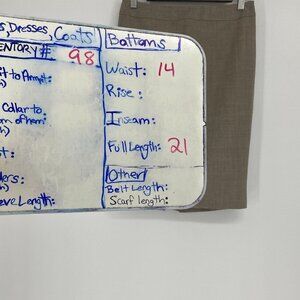 s, Dresses, Coats
ENTORY# 98
it to Armpit:
Collar to
om of hem:
t:
ders:
eve Length:
Bottoms
Waist: 14
Rise:
Inseam:
Full Length: 21
Other
Belt Length:
Scarf length: